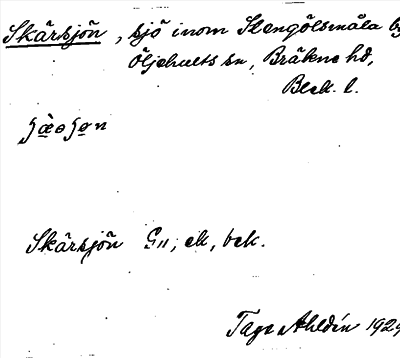 Skärsjön, sjö inom Stengölsmåla by
Öljehults sn, Bräkne hd,
Blek. l.
Skärsjön Gu, ek, bek.
Tage Ahldén 1929